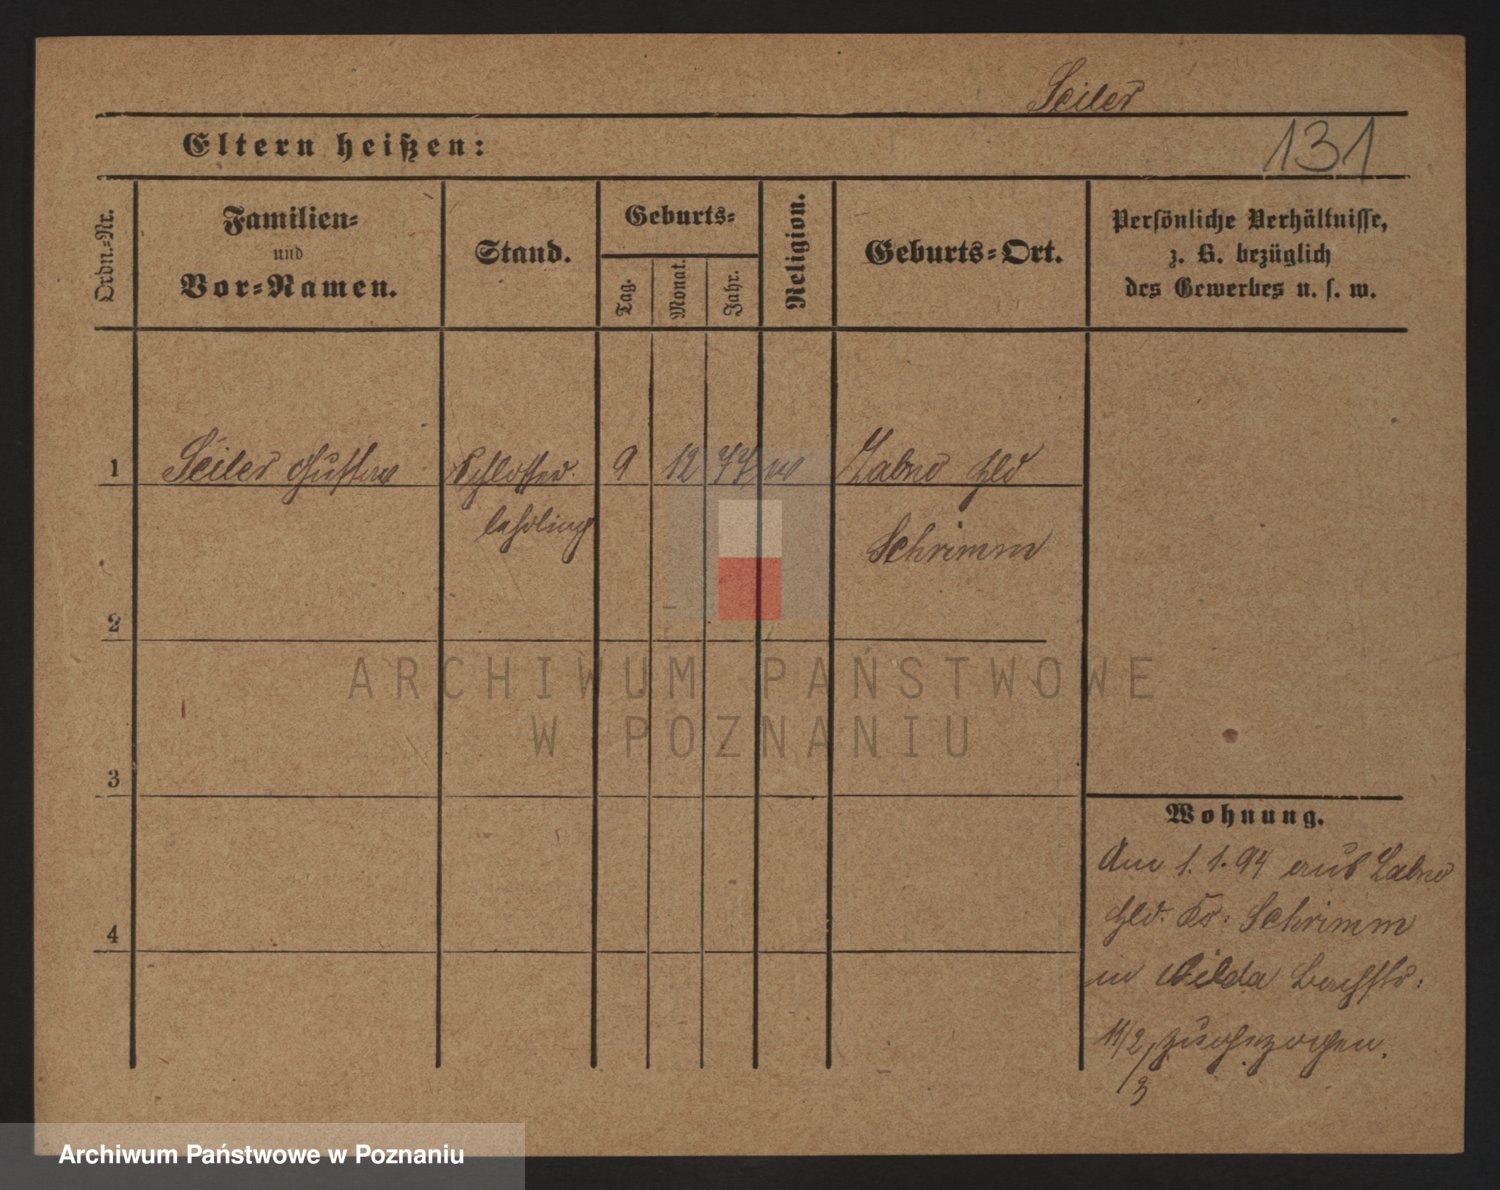 Seiler
Eltern heißen:
131
Ordn.-Nr.
Familien-
und
Vor-Namen.
Stand.
Geburts-
Tag.
Monat.
Jahr.
Religion.
Geburts-Ort.
Persönliche Verhältnisse,
z. B. bezüglich
des Gewerbes u. s. w.
1 Seiler Gustav Schlosser- 9 12 77 Zabno Hld
lehrling Schrimm
2
3
4
Wohnung.
Am 1.1.94 aus Zabno
Hld. Kr: Schrimm
in Wilda Bachstr:
11/2 zugezogen.
3
ARCHIWUM PAŃSTWOWE
W POZNANIU
Archiwum Państwowe w Poznaniu